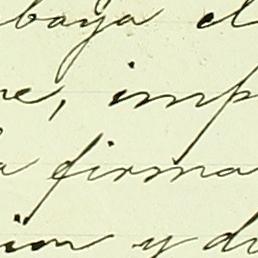 baya el
re, imp
a firma
ion y de